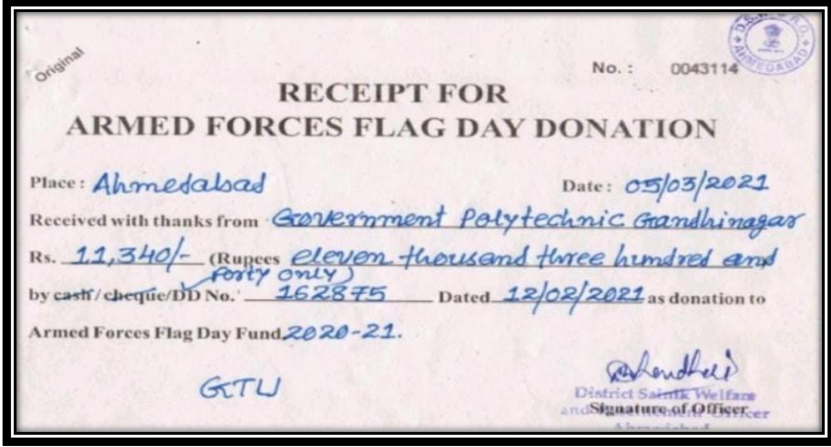 Original
No. : 0043114
RECEIPT FOR
ARMED FORCES FLAG DAY DONATION
Place : Ahmedabad Date : 05/03/2021
Received with thanks from Government Polytechnic Gandhinagar
Rs. 11,340/- (Rupees eleven thousand three hundred and
forty only)
by cash / cheque/DD No. 162875 Dated 12/02/2021 as donation to
Armed Forces Flag Day Fund 2020-21.
GTU
District Sainik Welfare
and Officer
Signature of Officer
AHMEDABAD